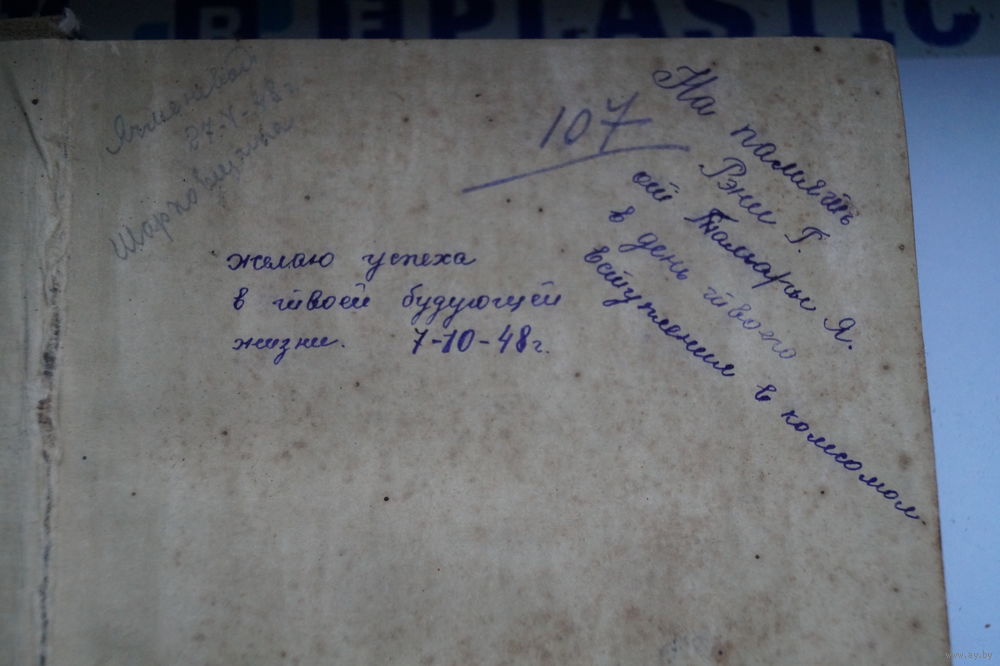 PLASTIC
27-V-48 г.
107
На память
Рэни Г.
от Тамары Я.
в день твоего
вступления в комсомол.
желаю успеха
в твоей будующей
жизни. 7-10-48 г.
www.ay.by